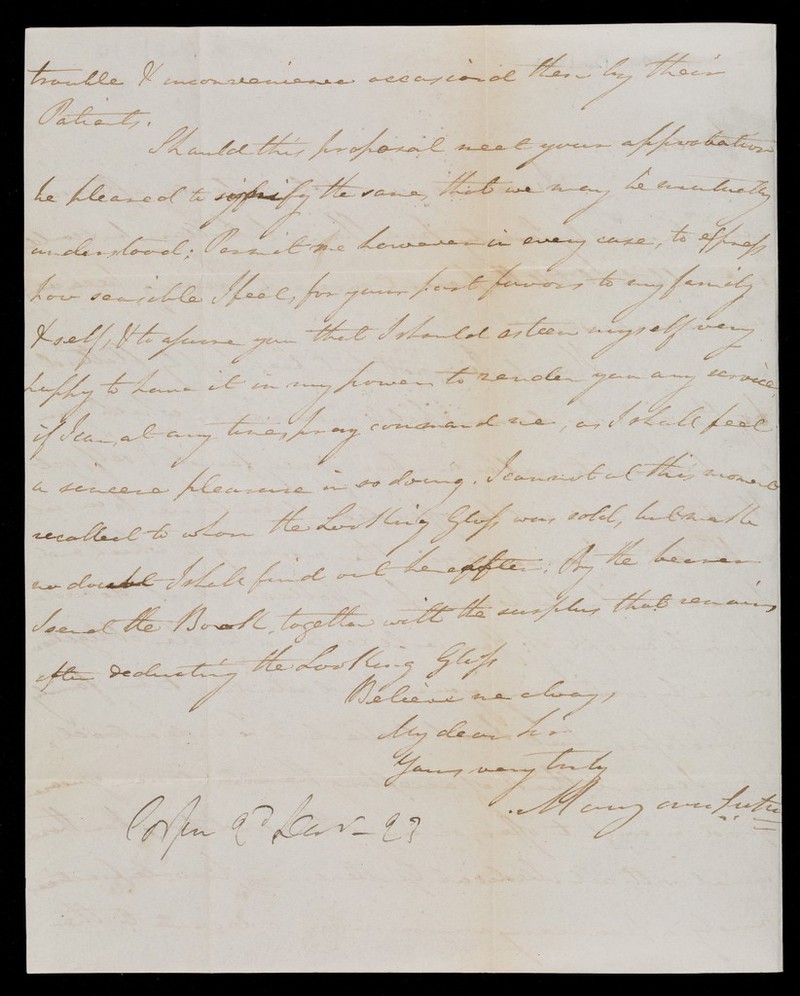 trouble & inconvenience occasion'd them by their
Patients.
Should this proposal meet your approbation
be pleased to signify the same, that we may be mutually
understood; Permit me however in every case, to express
how sensible I feel, for your past favors to my family
& self, & to assure you that I should esteem myself very
happy to have it in my power to render you any service
if I can, at any time, pray command me, as I shall feel
a sincere pleasure in so doing. I cannot at this moment
recollect to whom the Looking Glass was sold, but make
no doubt I shall find out hereafter; By the bearer
I send the Book, together with the surplus that remains
after deducting the Looking Glass
Believe me always
My dear Sir
Yours very truly
Corfu 2d